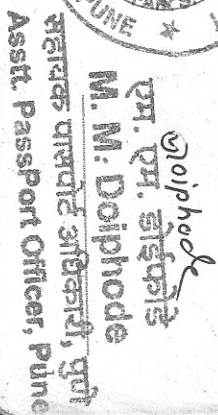 PUNE
Doiphode
एम. एम. डोईफोडे
M. M. Doiphode
सहायक पासपोर्ट अधिकारी, पुणे
Asstt. Passport Officer, Pune